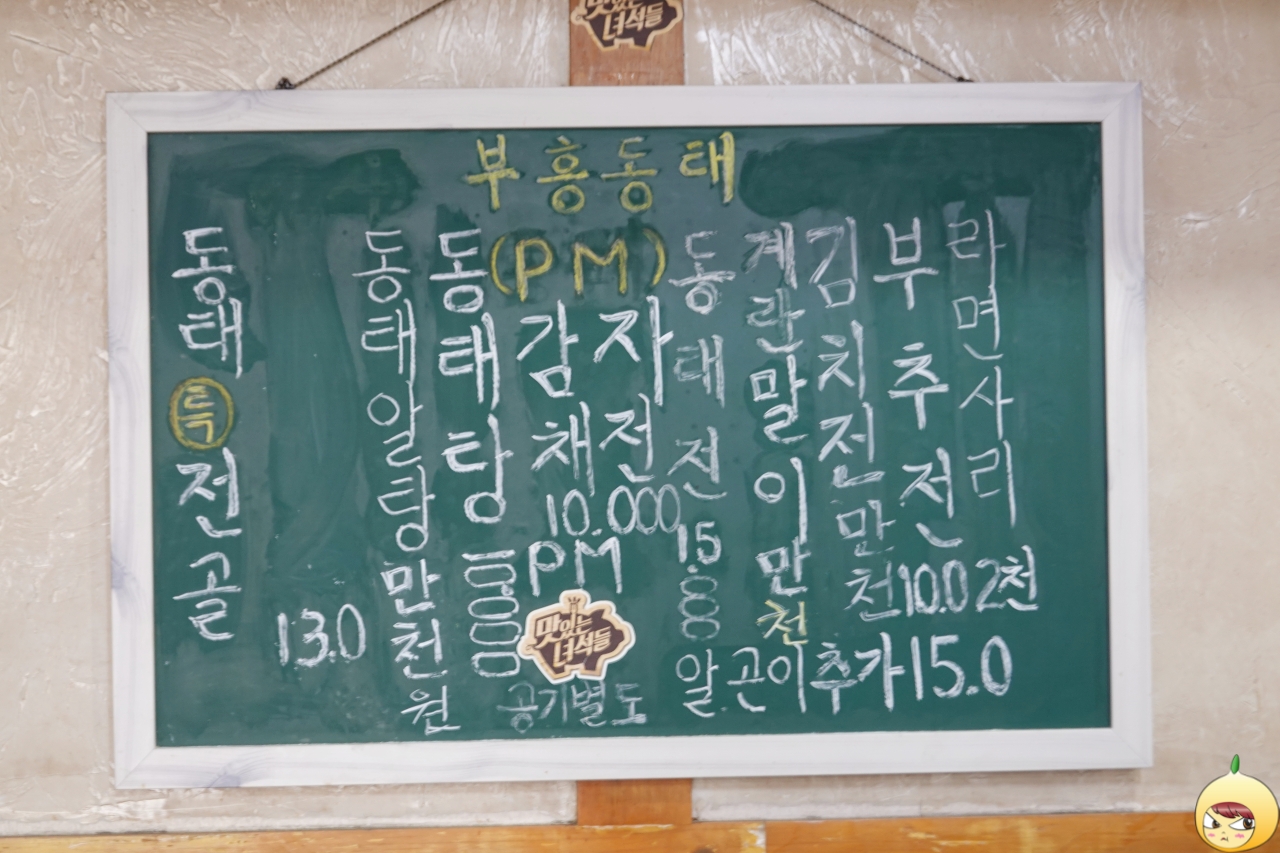 맛있는 녀석들
부흥동태
(PM)
동태 특 전골
13.0
동태알탕 만천원
동태탕 10000
감자채전
10.000
PM
맛있는 녀석들
공기별도
동태전 15.000
계란말이 만천
김치전 만천
부추전 10.0
라면사리 2천
알.곤이추가 15.0